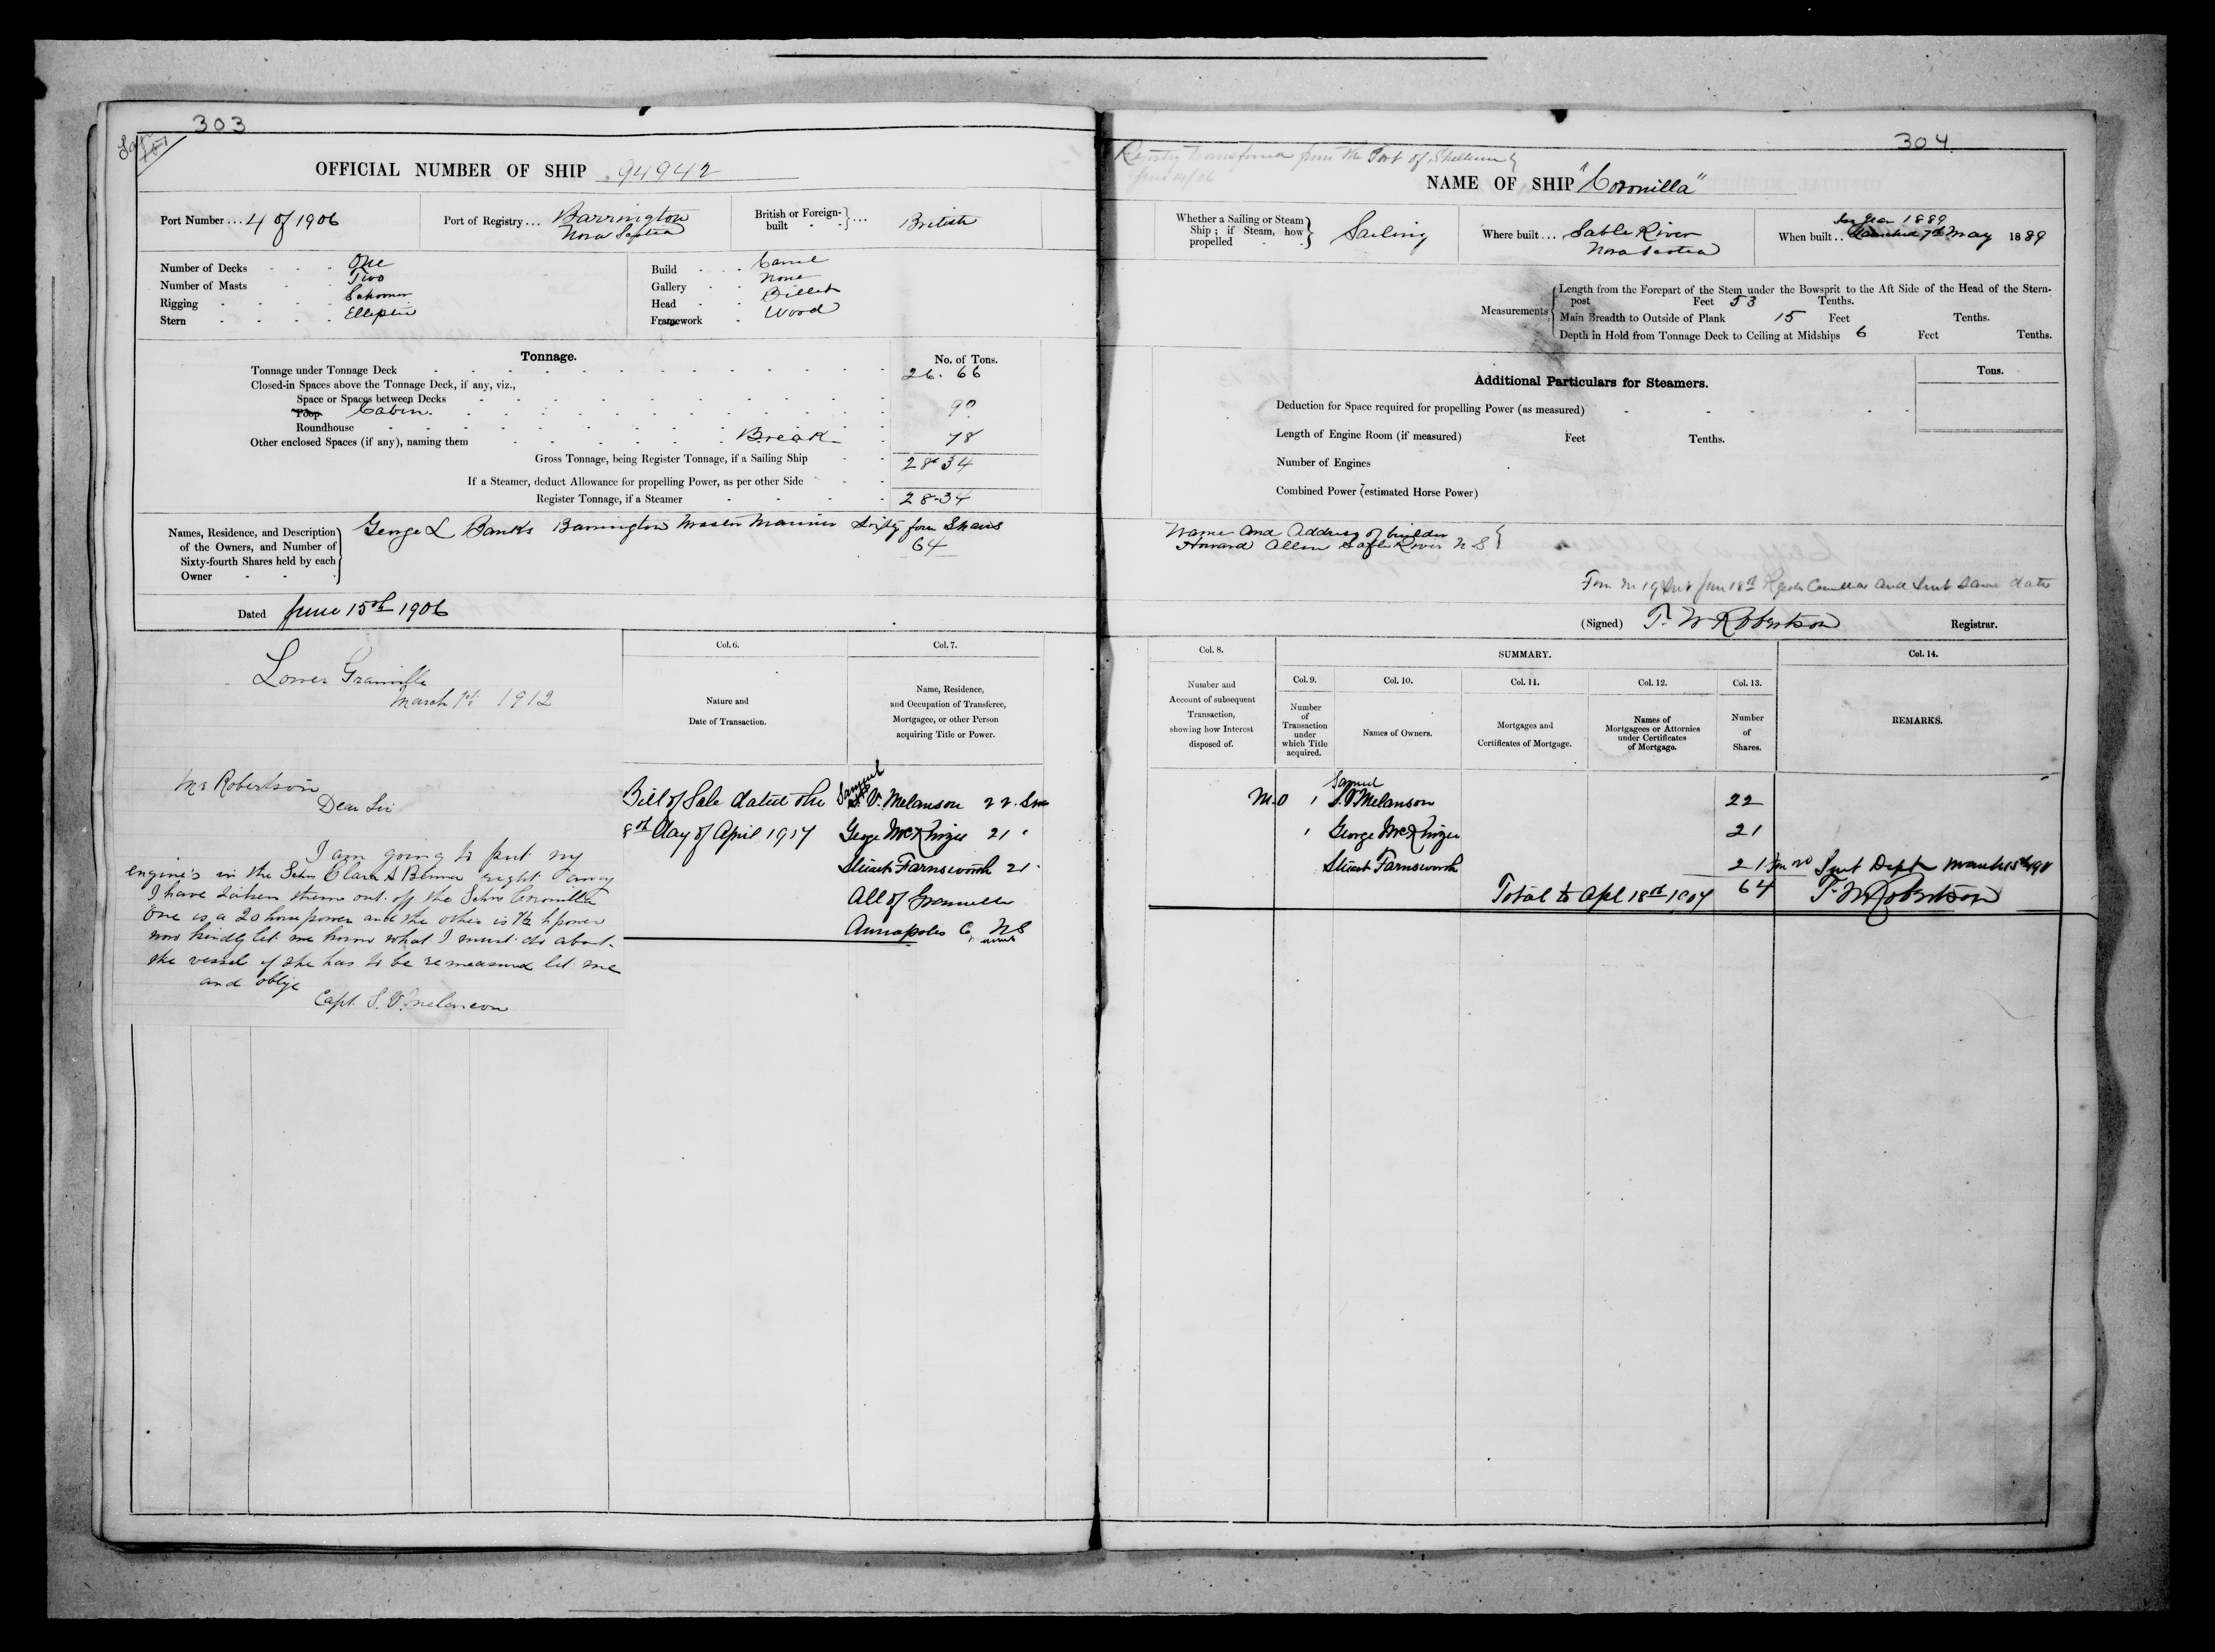 303
OFFICIAL NUMBER OF SHIP 94942
Port Number... 4 of 1906
Port of Registry... Barrington
Nova Scotia
British or Foreign-built } ... British
Number of Decks One
Number of Masts Two
Rigging Schooner
Stern Elliptic
Build Carvel
Gallery None
Head Billet
Framework Wood
Tonnage.
No. of Tons.
Tonnage under Tonnage Deck 26.66
Closed-in Spaces above the Tonnage Deck, if any, viz.,
Space or Spaces between Decks
Poop Cabin. 90
Roundhouse
Other enclosed Spaces (if any), naming them Break 78
Gross Tonnage, being Register Tonnage, if a Sailing Ship 28.34
If a Steamer, deduct Allowance for propelling Power, as per other Side
Register Tonnage, if a Steamer 28.34
Names, Residence, and Description
of the Owners, and Number of
Sixty-fourth Shares held by each
Owner
George L Banks Barrington Master Mariner Sixty four Shares
64
Dated June 15th 1906
Lower Granville
March 1st 1912
Mr Robertson
Dear Sir
I am going to put my
engine's in the Schr Clara A Benner right away
I have taken them out off the Schr Coronilla
One is a 20 horse power and the other is 7½ h power
now kindly let me know what I must do about
the vessel if she has to be remeasured let me
and oblige
Capt. S. V. Melanson
Col. 6.
Nature and
Date of Transaction.
Col. 7.
Name, Residence,
and Occupation of Transferee,
Mortgagee, or other Person
acquiring Title or Power.
Bill of Sale dated the
8th day of April 1907
Samuel
V. Melanson 22
George McKenzie 21
Stuart Farnsworth 21
All of Granville
Annapolis C. NS
304
Registry transferred from the Port of Shelburne
June 14/06
NAME OF SHIP "Coronilla"
Whether a Sailing or Steam
Ship; if Steam, how
propelled
Sailing
Where built... Sable River
Nova Scotia
In year 1889
When built.. Launched 7th May 1889
Measurements
Length from the Forepart of the Stem under the Bowsprit to the Aft Side of the Head of the Stern-
post Feet 53 Tenths.
Main Breadth to Outside of Plank 15 Feet Tenths.
Depth in Hold from Tonnage Deck to Ceiling at Midships 6 Feet Tenths.
Additional Particulars for Steamers.
Tons.
Deduction for Space required for propelling Power (as measured)
Length of Engine Room (if measured) Feet Tenths.
Number of Engines
Combined Power (estimated Horse Power)
Name and Address of builder
Howard Allen Sable River N.S
and sent same date
(Signed) T. W Robertson Registrar.
Col. 8.
Number and
Account of subsequent
Transaction,
showing how Interest
disposed of.
SUMMARY.
Col. 9.
Number
of
Transaction
under
which Title
acquired.
Col. 10.
Names of Owners.
Col. 11.
Mortgages and
Certificates of Mortgage.
Col. 12.
Names of
Mortgagees or Attornies
under Certificates
of Mortgage.
Col. 13.
Number
of
Shares.
Col. 14.
REMARKS.
M.O 1 Samuel
S. V Melanson 22
1 George McKenzie 21
Stuart Farnsworth 21
Sent Dept March
Total to Apl 18th 1907 64
T. W Robertson